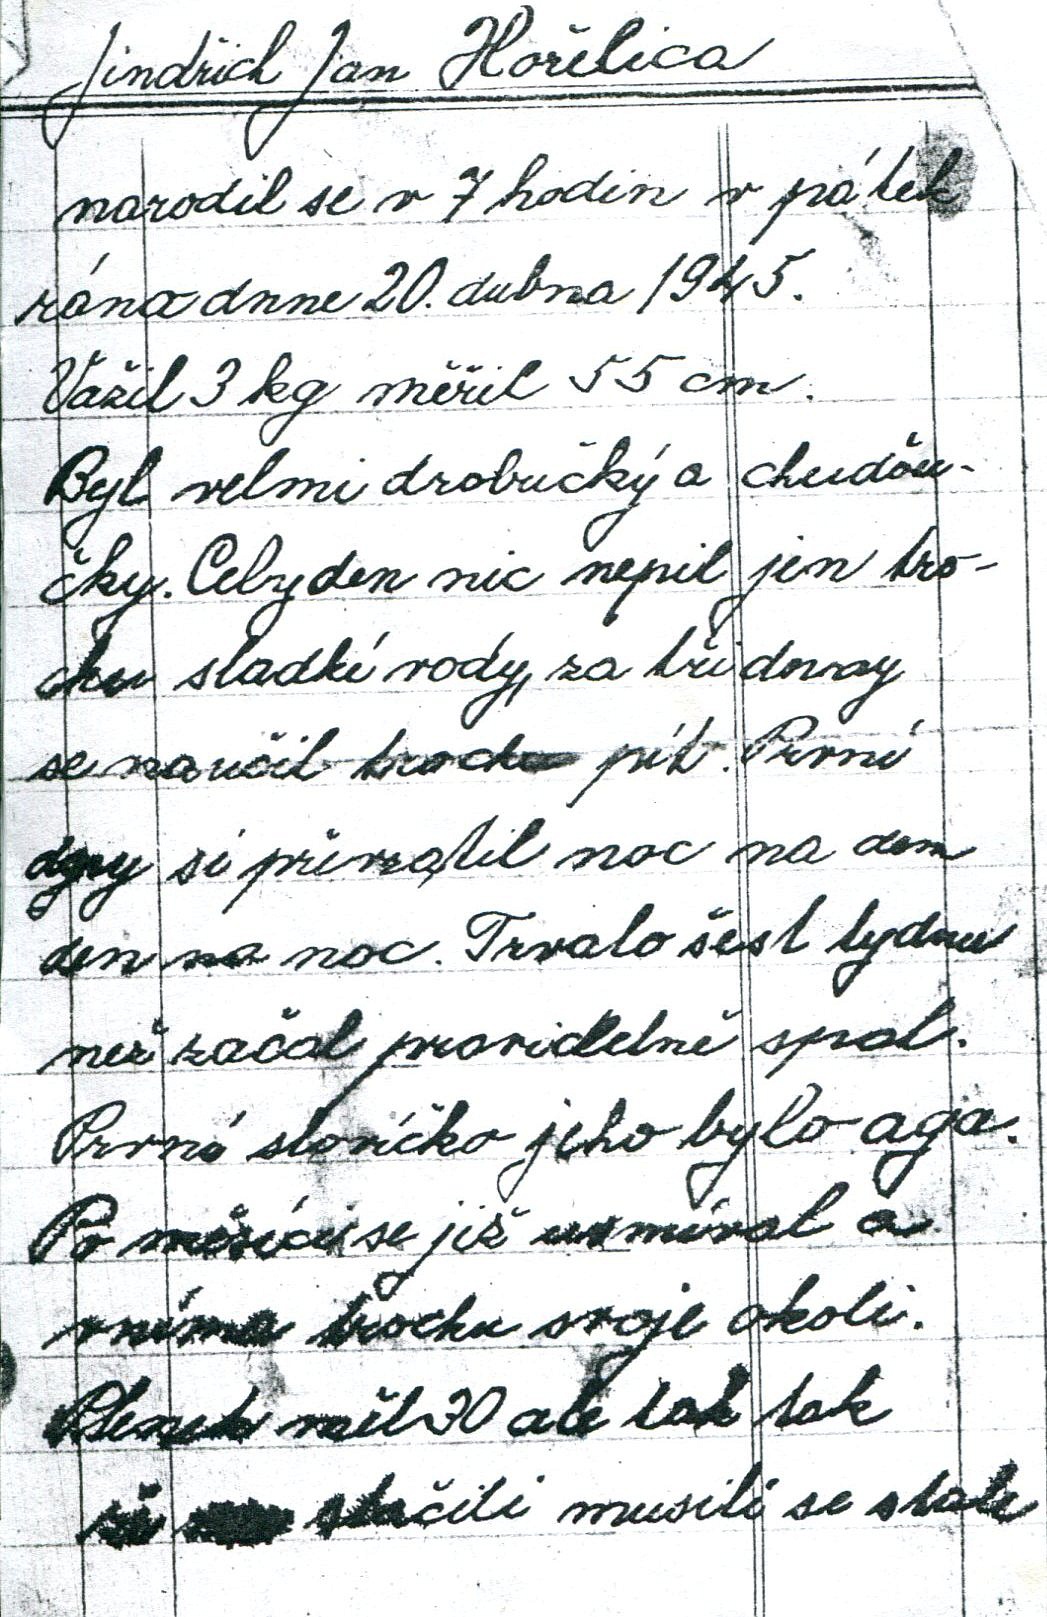 Jindřich Jan Hořelica
narodil se v 7 hodin v pátek
rána dnne 20. dubna 1945.
Vážil 3 kg měřil 55 cm.
Byl velmi drobučký a chudou-
čky. Cely den nic nepil jen tro-
chu sladké vody, za tři dny
se naučil trochu pít. Prvni
dny si převratil noc na den
den na noc. Trvalo šest tydnu
než začal pravidelně spat.
Prvné slovíčko jeho bylo aga.
Po měsíci se již usmíval a
vníma trochu svoje okoli.
Plenek měl 30 ale tak tak
že stačili museli se stale